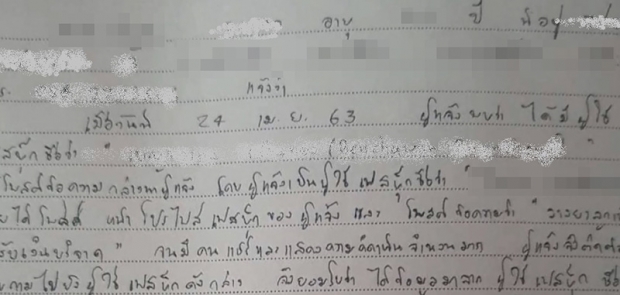 อายุ ปี ที่อยู่
แจ้งว่า
เมื่อวันที่ 24 เม.ย. 63 ผู้แจ้งพบว่า ได้มีผู้ใช้
สบุ๊ก ชื่อว่า "
โพสต์ข้อความกล่าวหาผู้แจ้ง โดยผู้แจ้งเป็นผู้ใช้ เฟสบุ๊กชื่อว่า "
ได้โพสต์ หน้าโปรไฟล์ เฟสบุ๊กของผู้แจ้ง และ โพสต์ข้อความว่า "
รับเงินบริจาค " จนมีคนแชร์และแสดงความคิดเห็นจำนวนมาก ผู้แจ้งจึง
ถามไปยังผู้ใช้ เฟสบุ๊กดังกล่าว จึงยอมรับว่า ได้ข้อมูลมาจาก ผู้ใช้ เฟสบุ๊ก ชื่อ